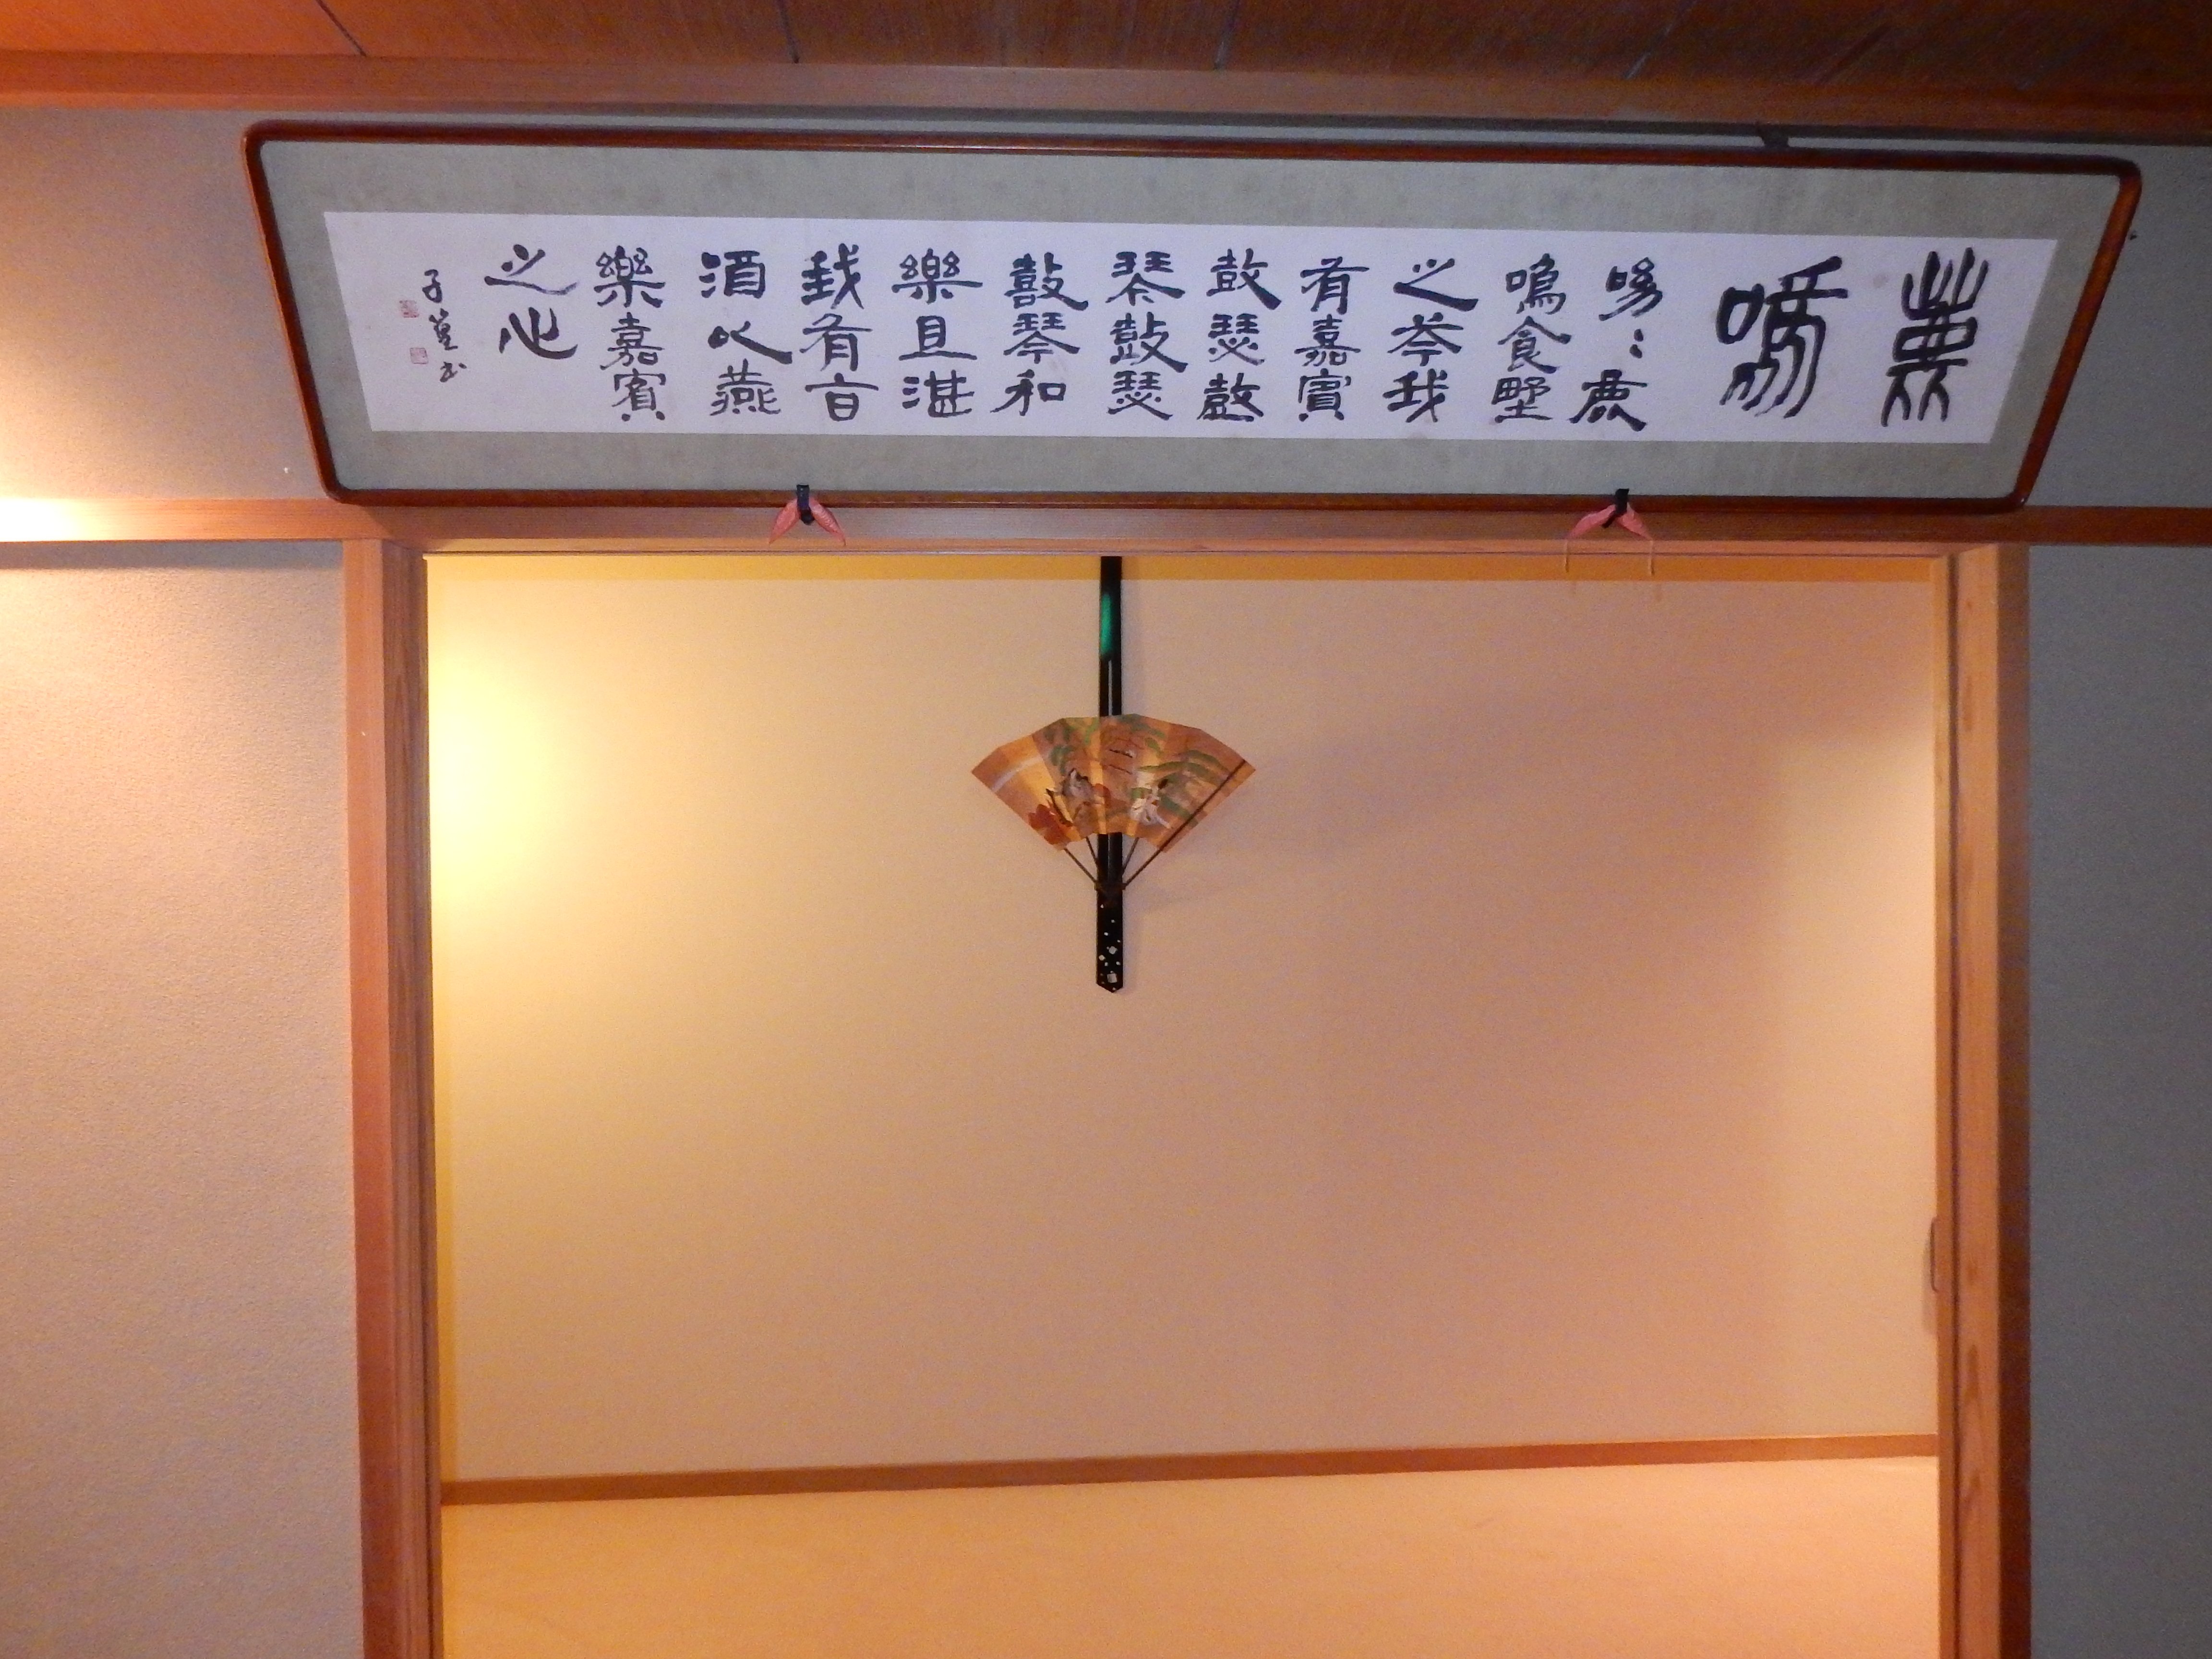 鹿
鳴
呦〻鹿
鳴食野
之芩我
有嘉賓
鼓瑟鼓
琴鼓瑟
鼓琴和
樂且湛
我有旨
酒以燕
樂嘉賓
之心
子
書